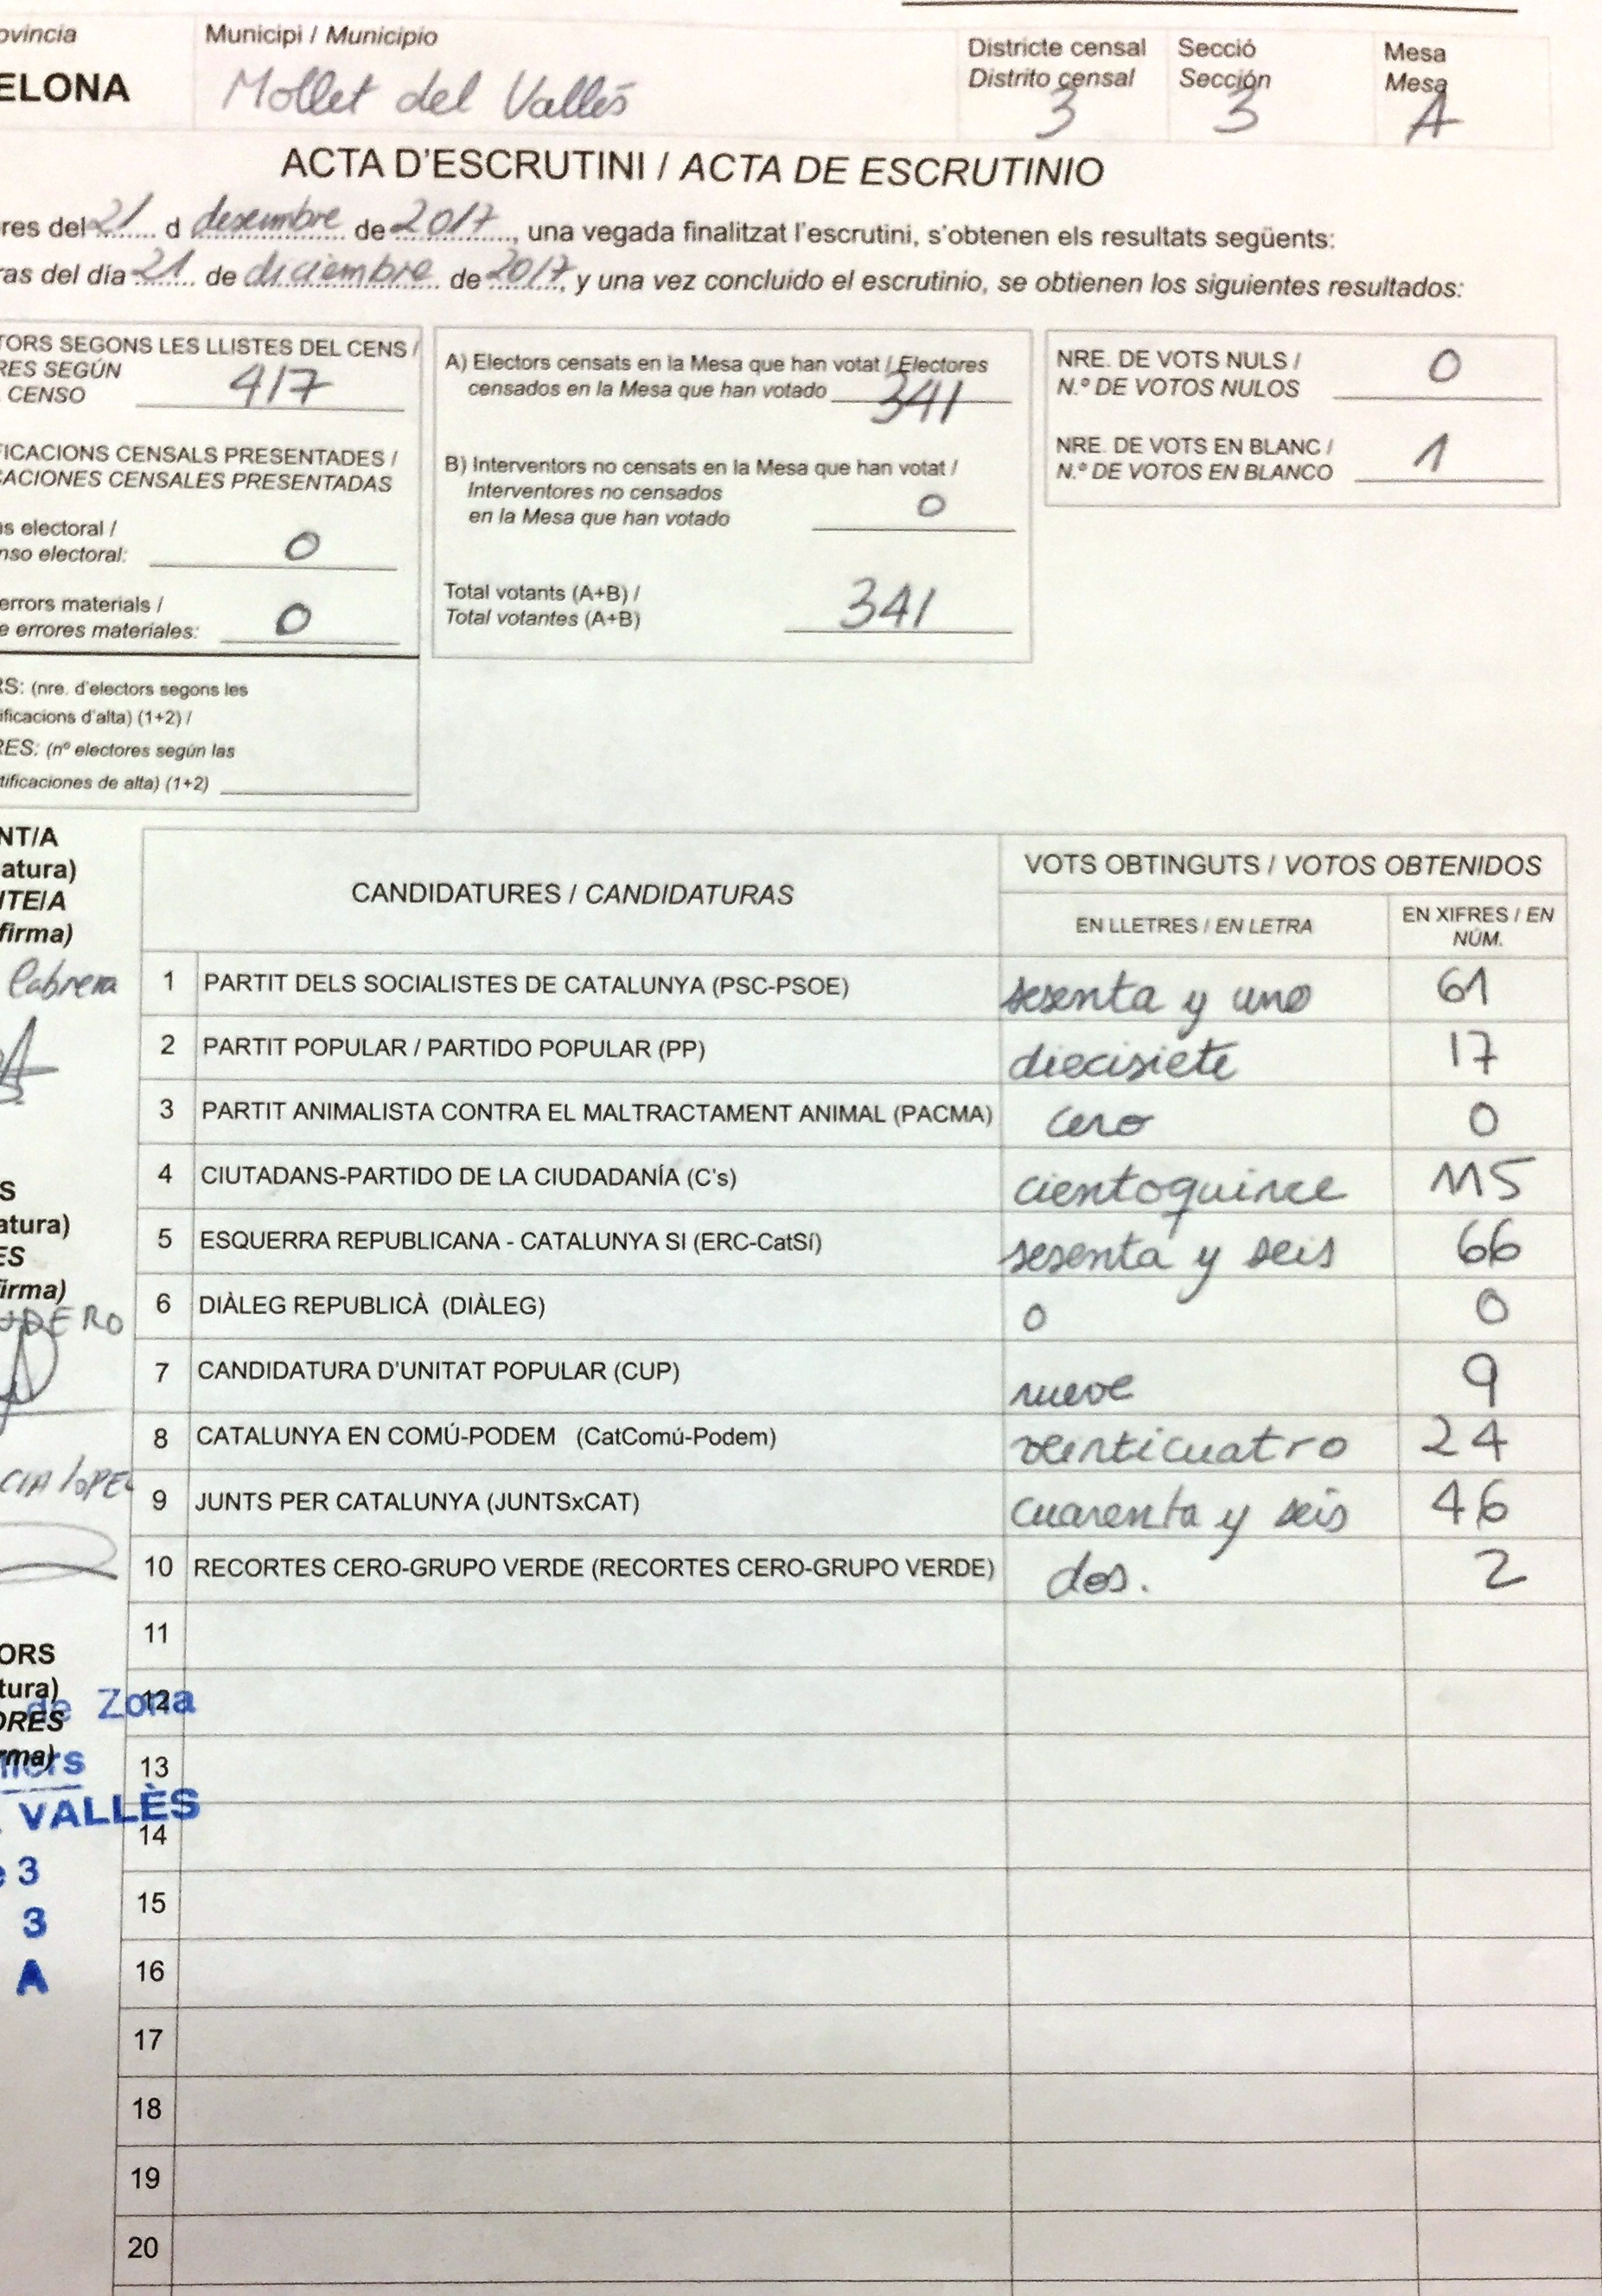 ovíncia
Municipi / Municipio
Districte censal
Secció
Mesa
Distrito censal
Sección
Mesa
ELONA
Mollet del Vallés
3
3
A
ACTA D'ESCRUTINI / ACTA DE ESCRUTINIO
res del 21 d desembre de 2017, una vegada finalitzat l'escrutini, s'obtenen els resultats següents:
as del día 21 de diciembre de 2017, y una vez concluido el escrutinio, se obtienen los siguientes resultados:
TORS SEGONS LES LLISTES DEL CENS /
RES SEGÚN
CENSO 417
FICACIONS CENSALS PRESENTADES /
CACIONES CENSALES PRESENTADAS
s electoral /
nso electoral: 0
errors materials /
e errores materiales: 0
RS: (nre. d'electors segons les
ificacions d'alta) (1+2) /
RES: (nº electores según las
tificaciones de alta) (1+2)
A) Electors censats en la Mesa que han votat / Electores
censados en la Mesa que han votado 341
B) Interventors no censats en la Mesa que han votat /
Interventores no censados
en la Mesa que han votado 0
Total votants (A+B) /
Total votantes (A+B) 341
NRE. DE VOTS NULS /
N.º DE VOTOS NULOS 0
NRE. DE VOTS EN BLANC /
N.º DE VOTOS EN BLANCO 1
NT/A
atura)
TE/A
firma)
Cabrera
S
atura)
ES
firma)
DERO
CIA LOPE
ORS
tura)
ORES
rma)
de Zona
VALLÈS
3
3
A
CANDIDATURES / CANDIDATURAS
VOTS OBTINGUTS / VOTOS OBTENIDOS
EN LLETRES / EN LETRA
EN XIFRES / EN
NÚM.
1 PARTIT DELS SOCIALISTES DE CATALUNYA (PSC-PSOE) sesenta y uno 61
2 PARTIT POPULAR / PARTIDO POPULAR (PP) diecisiete 17
3 PARTIT ANIMALISTA CONTRA EL MALTRACTAMENT ANIMAL (PACMA) cero 0
4 CIUTADANS-PARTIDO DE LA CIUDADANÍA (C's) cientoquince 115
5 ESQUERRA REPUBLICANA - CATALUNYA SI (ERC-CatSí) sesenta y seis 66
6 DIÀLEG REPUBLICÀ (DIÀLEG) 0 0
7 CANDIDATURA D'UNITAT POPULAR (CUP) nueve 9
8 CATALUNYA EN COMÚ-PODEM (CatComú-Podem) veinticuatro 24
9 JUNTS PER CATALUNYA (JUNTSxCAT) cuarenta y seis 46
10 RECORTES CERO-GRUPO VERDE (RECORTES CERO-GRUPO VERDE) dos. 2
11
12
13
14
15
16
17
18
19
20